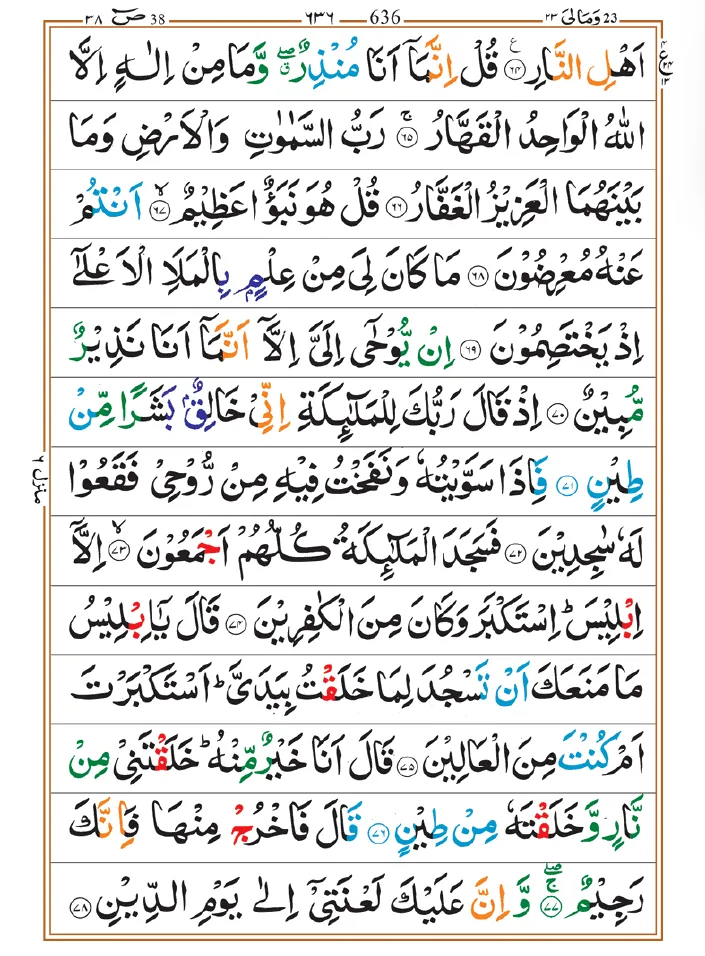 23 وَمَالِیَ ۲۳ 636 ۶۳۶ 38 صٓ ۳۸
اَهْلِ النَّارِ ﴿۶۴﴾ قُلْ اِنَّمَاۤ اَنَا مُنْذِرٌ ۖۗ وَّمَا مِنْ اِلٰهٍ اِلَّا
اللّٰهُ الْوَاحِدُ الْقَهَّارُ ﴿۶۵﴾ۚ رَبُّ السَّمٰوٰتِ وَالْاَرْضِ وَمَا
بَیْنَهُمَا الْعَزِیْزُ الْغَفَّارُ ﴿۶۶﴾ قُلْ هُوَ نَبَؤٌا عَظِیْمٌ ﴿۶۷﴾ۙ اَنْتُمْ
عَنْهُ مُعْرِضُوْنَ ﴿۶۸﴾ مَا كَانَ لِیَ مِنْ عِلْمٍۭ بِالْمَلَاِ الْاَعْلٰۤی
اِذْ یَخْتَصِمُوْنَ ﴿۶۹﴾ اِنْ یُّوْحٰۤی اِلَیَّ اِلَّاۤ اَنَّمَاۤ اَنَا نَذِیْرٌ
مُّبِیْنٌ ﴿۷۰﴾ اِذْ قَالَ رَبُّكَ لِلْمَلٰٓىِٕكَةِ اِنِّیْ خَالِقٌۢ بَشَرًا مِّنْ
طِیْنٍ ﴿۷۱﴾ فَاِذَا سَوَّیْتُهٗ وَنَفَخْتُ فِیْهِ مِنْ رُّوْحِیْ فَقَعُوْا
لَهٗ سٰجِدِیْنَ ﴿۷۲﴾ فَسَجَدَ الْمَلٰٓىِٕكَةُ كُلُّهُمْ اَجْمَعُوْنَ ﴿۷۳﴾ۙ اِلَّاۤ
اِبْلِیْسَ ؕ اِسْتَكْبَرَ وَكَانَ مِنَ الْكٰفِرِیْنَ ﴿۷۴﴾ قَالَ یٰۤاِبْلِیْسُ
مَا مَنَعَكَ اَنْ تَسْجُدَ لِمَا خَلَقْتُ بِیَدَیَّ ؕ اَسْتَكْبَرْتَ
اَمْ كُنْتَ مِنَ الْعَالِیْنَ ﴿۷۵﴾ قَالَ اَنَا خَیْرٌ مِّنْهُ ؕ خَلَقْتَنِیْ مِنْ
نَّارٍ وَّخَلَقْتَهٗ مِنْ طِیْنٍ ﴿۷۶﴾ قَالَ فَاخْرُجْ مِنْهَا فَاِنَّكَ
رَجِیْمٌ ﴿۷۷﴾ۖۚ وَّاِنَّ عَلَیْكَ لَعْنَتِیْۤ اِلٰی یَوْمِ الدِّیْنِ ﴿۷۸﴾
منزل ۶